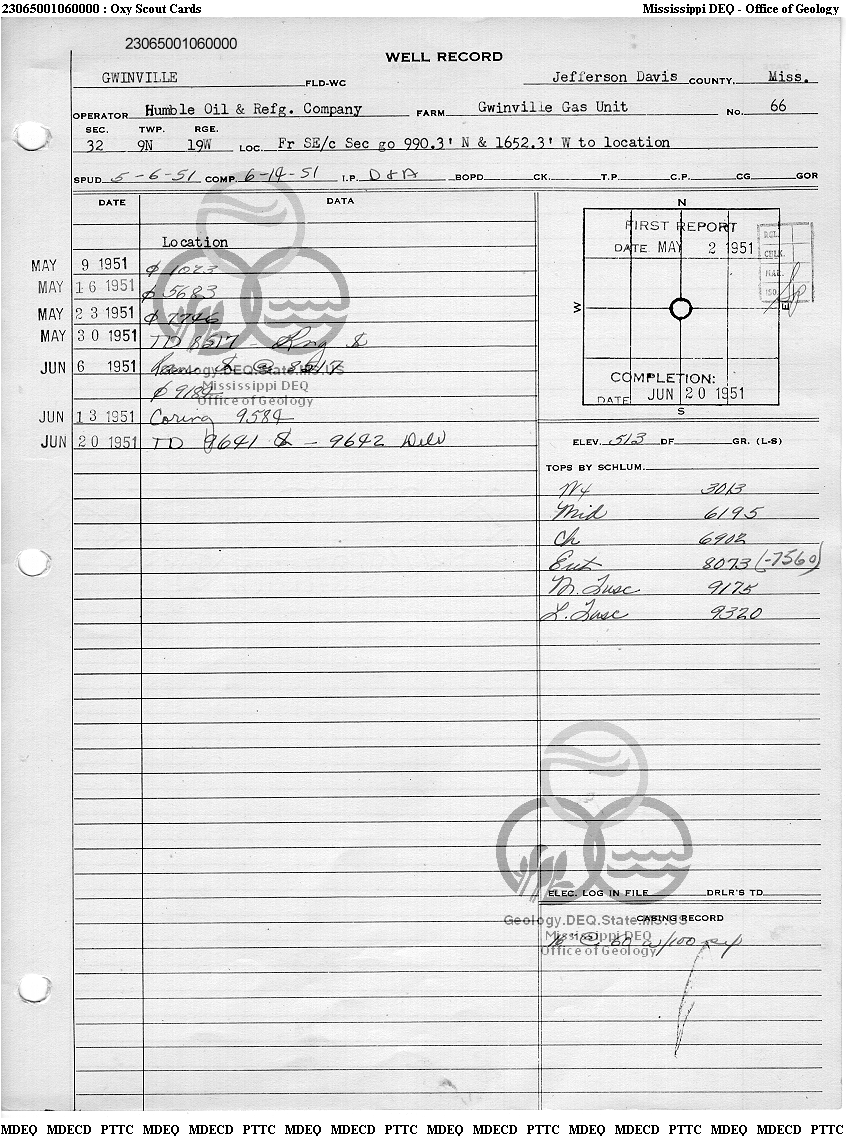 23065001060000 : Oxy Scout Cards Mississippi DEQ - Office of Geology
23065001060000
WELL RECORD
GWINVILLE FLD-WC Jefferson Davis COUNTY, Miss.
OPERATOR Humble Oil & Refg. Company FARM Gwinville Gas Unit No. 66
SEC. TWP. RGE.
32 9N 19W LOC. Fr SE/c Sec go 990.3' N & 1652.3' W to location
SPUD 5-6-51 COMP. 6-14-51 I.P. D&A BOPD CK. T.P. C.P. CG GOR
DATE DATA
Location
MAY 9 1951 1023
MAY 16 1951 5683
MAY 23 1951 7746
MAY 30 1951 TD 8517
JUN 6 1951 @ 8517
9184
JUN 13 1951 Coring 9584
JUN 20 1951 TD 9641 - 9642
N
FIRST REPORT
DATE MAY 2 1951
W
E
COMPLETION:
DATE JUN 20 1951
S
ELEV. 513 DF GR. (L-S)
TOPS BY SCHLUM.
Wx 3013
Mid 6195
Ch 6902
Eut 8073 (-7560)
M. Tusc 9175
L. Tusc 9320
ELEC. LOG IN FILE DRLR'S TD
CASING RECORD
@ 60 w/100
Geology.DEQ.State.MS.US
Mississippi DEQ
Office of Geology
Geology.DEQ.State.MS.US
Mississippi DEQ
Office of Geology
MDEQ MDECD PTTC MDEQ MDECD PTTC MDEQ MDECD PTTC MDEQ MDECD PTTC MDEQ MDECD PTTC MDEQ MDECD PTTC